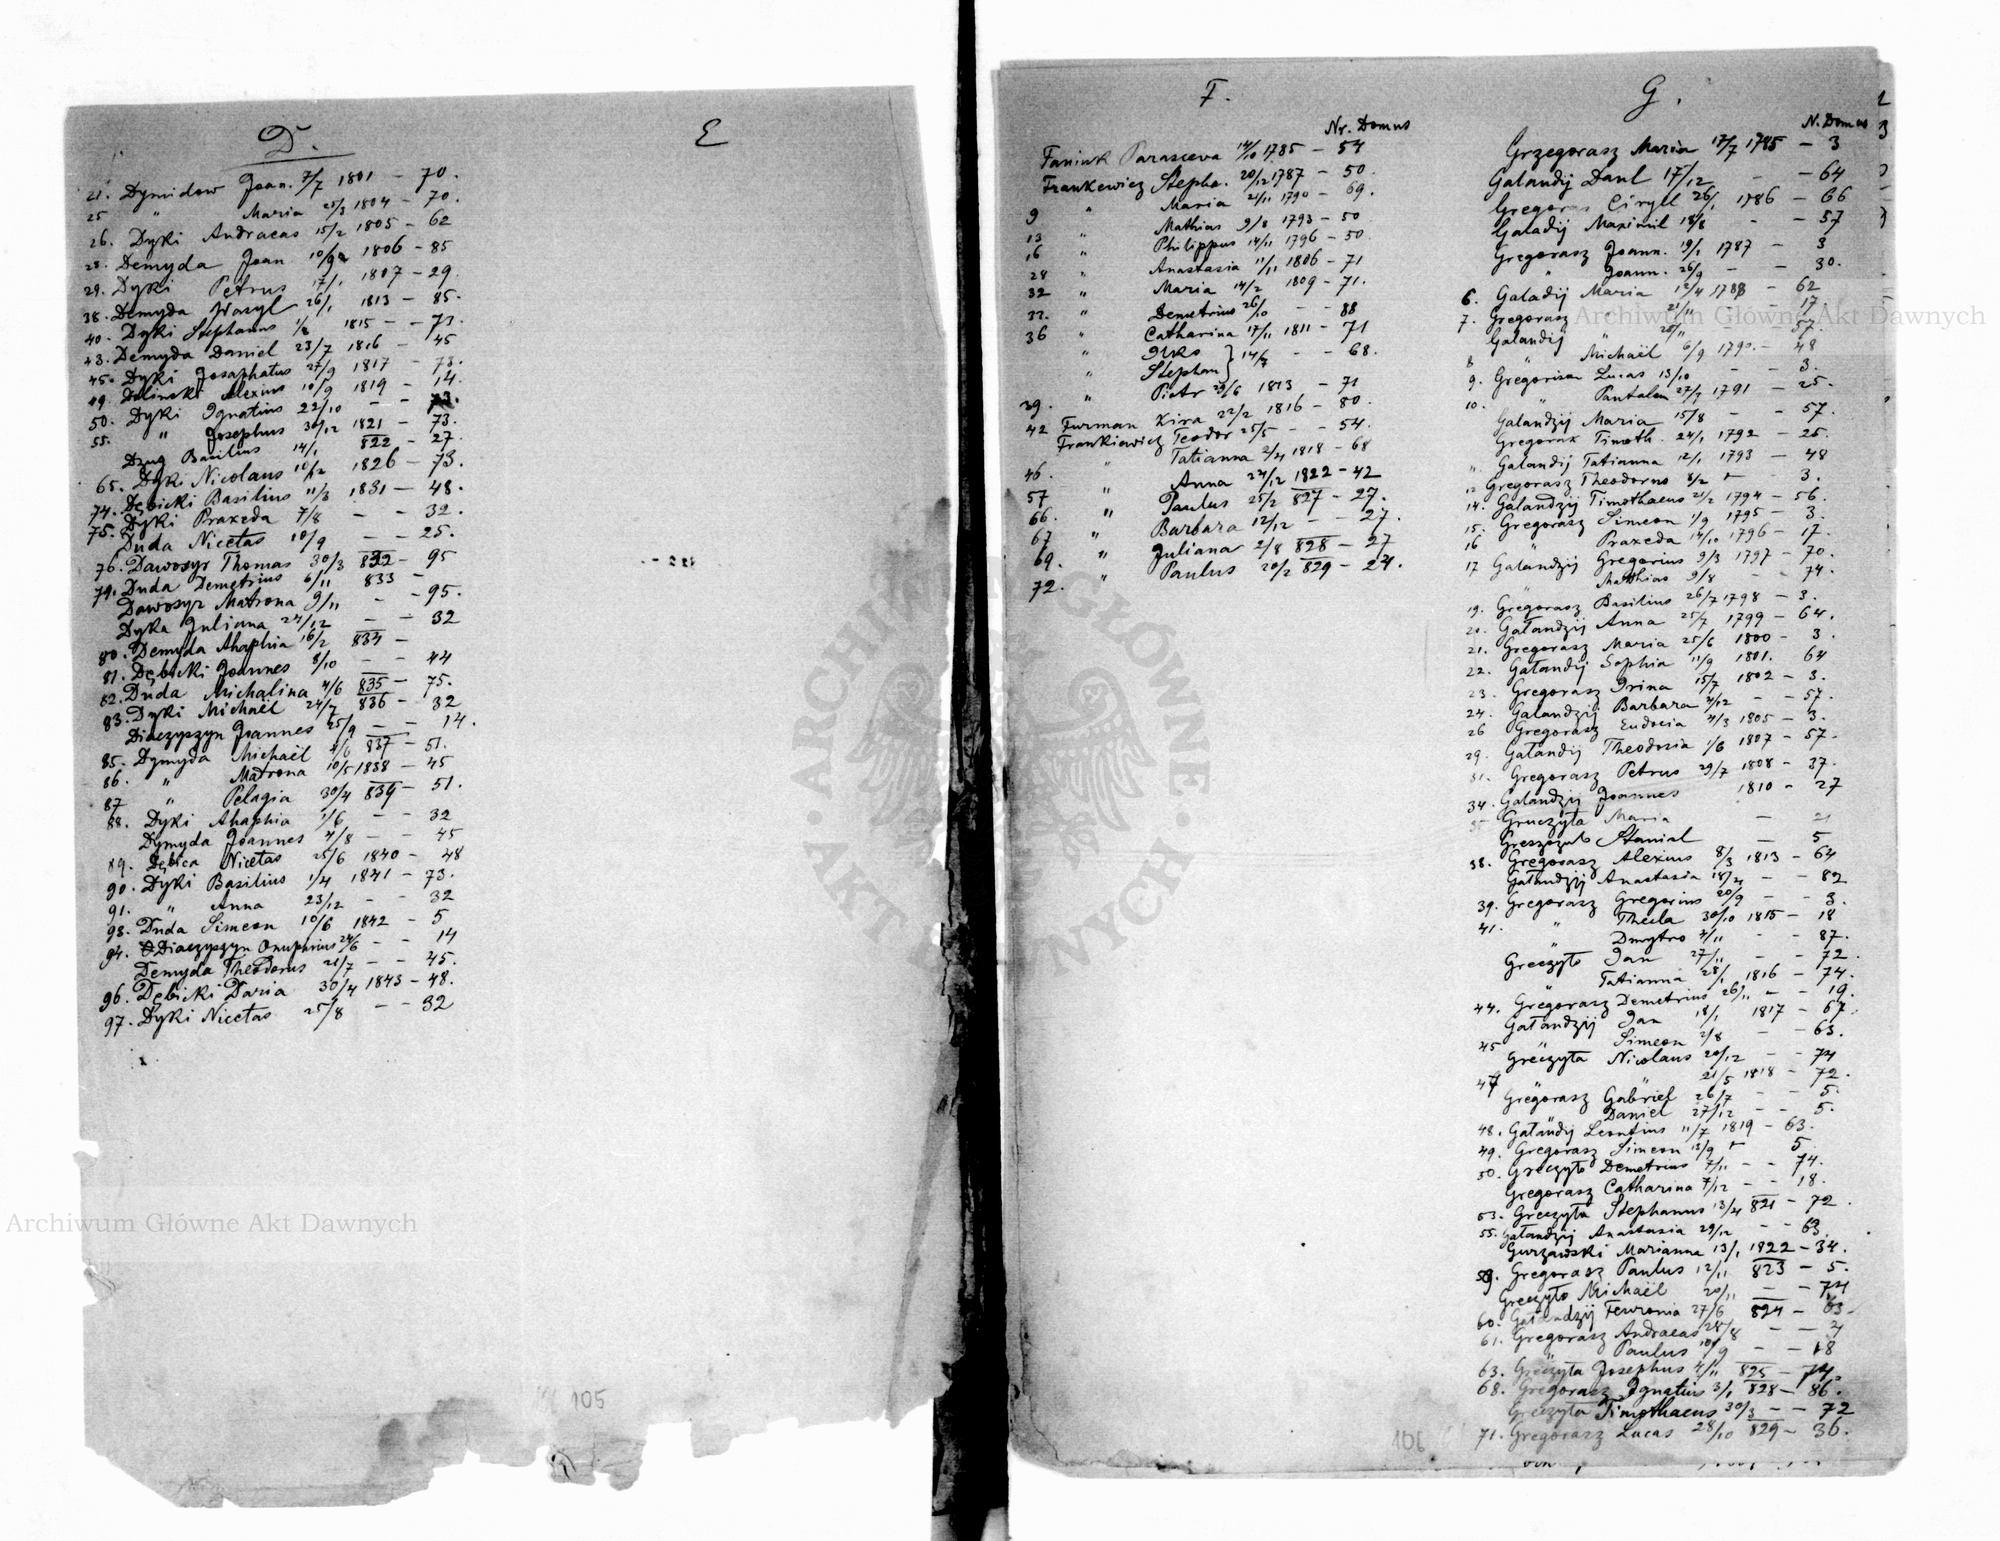 D.
21. Dymidow Joan. 7/7 1801 - 70.
25 " Maria 25/3 1804 - 70.
26. Dyki Andraeas 15/2 1805 - 62
28. Demyda Joan 10/9 1806 - 85
29. Dyki Petrus 17/1 1807 - 29.
38. Demyda Wasyl 26/1 1813 - 85.
40. Dyki Stephanus 1/8 1815 - - 73.
43. Demyda Daniel 23/7 1816 - 45
45. Dyki Josaphatus 27/9 1817 - 73.
49. Dilinski Alexius 10/9 1819 - 14.
50. Dyki Ignatius 22/10 - - 73.
55. " Josephus 30/12 1821 - 73.
Dzug Basilius 14/1 822 - 27
65. Dyki Nicolaus 10/12 1826 - 73.
74. Dębicki Basilius 11/3 1831 - 48.
75. Dyki Praxeda 7/8 - - 32.
Duda Nicetas 10/9 - - 25.
76. Dawosyr Thomas 30/3 832 - 95
79. Duda Demetrius 6/11 833 -
Dawosyr Matrona 9/11 - - 95.
Dyka Juliana 24/12 - - 32
80. Demyda Ahaphia 16/2 834 -
81. Dębicki Joannes 8/10 - - 44
82. Duda Michalina 4/6 835 - 75.
83. Dyki Michaël 24/7 836 - 32
Diaczyszyn Joannes 25/9 - - 14.
85. Dymyda Michaël 4/6 837 - 51.
86. " Matrona 10/5 1838 - 45
87 " Pelagia 30/4 839 - 51.
88. Dyki Ahaphia 1/6 - - 32
Dymyda Joannes 4/8 - - 45
89. Dębica Nicetas 25/6 1840 - 48
90. Dyki Basilius 1/4 1841 - 73.
91. " Anna 23/12 - - 32
93. Duda Simeon 10/6 1842 - 5
94. Diaczyszyn Onuphrius 24/6 - - 14
Demyda Theodorus 21/7 - - 45.
96. Dębicki Daria 30/4 1843 - 48.
97. Dyki Nicetas 25/8 - - 32
E
105
F.
Nr. Domus
Faniuk Parasceva 14/10 1785 - 54
Frankewicz Stepha. 20/12 1787 - 50.
9 " Maria 21/11 1790 - 69.
13 " Mathias 9/8 1793 - 50
16 " Philippus 14/11 1796 - 50.
28 " Anastasia 11/11 1806 - 71
32 " Maria 14/2 1809 - 71.
33. " Demetrius 26/10 - - 88
36 " Catharina 17/11 1811 - 71
" Ilko } 14/7 - - 68.
" Stephan }
39. " Piotr 29/6 1813 - 71
42 Furman Kira 22/2 1816 - 80.
Frankiewicz Teodor 25/5 - - 54.
46. " Tatianna 2/4 1818 - 68
57 " Anna 24/12 1822 - 42
66. " Paulus 25/2 827 - 27.
67 " Barbara 12/12 - - 27.
69. " Juliana 2/8 828 - 27
72. " Paulus 20/2 829 - 24.
106
G.
N. Domus
Grzegorasz Maria 17/7 1785 - 3
Galandij Danl 17/12 - - 64
Gregoras Ciryll 26/1 1786 - 66
Galadij Maximil 18/8 - - 57
Gregorasz Joann. 19/1 1787 - 3
" Joann. 26/9 - - 30.
6. Galadij Maria 12/4 1788 - 62
7. Gregorasz " 21/11 - - 17
Galandij " 20/11 - - 57.
8 " Michaël 6/9 1790. - 48
9. Gregorisz Lucas 13/10 - - 3.
10. " Pantalem 27/7 1791 - 25.
Galandzij Maria 15/8 - - 57.
Gregorak Timoth. 24/1 1792 - 25.
" Galandij Tatianna 12/1 1793 - 48
12 Gregorasz Theodorus 8/2 - - 3.
14. Galandzij Timothaeus 21/2 1794 - 56.
15. Gregorasz Simeon 1/9 1795 - 3.
16 " Praxeda 14/10 1796 - 17.
17 Galandzij Gregorius 9/3 1797 - 70.
" Matthias 9/8 - - 74.
19. Gregorasz Basilius 26/7 1798 - 3.
20. Gałandzij Anna 25/7 1799 - 64.
21. Gregorasz Maria 25/6 1800 - 3.
22. Gałandij Sophia 11/9 1801. 64
23. Gregorasz Irina 15/7 1802 - 3.
24. Gałandzij Barbara 4/12 - - 57.
26 Gregorasz Eudocia 4/3 1805 - 3.
29. Gałandij Theodozia 1/6 1807 - 57.
31. Gregorasz Petrus 29/7 1808 - 37.
34. Galandzij Joannes 1810 - 27
35 Greczyła Maria - 21
Greszczyk Stanial - 5
38. Gregorasz Alexius 8/3 1813 - 64
Gałandzij Anastasia 18/4 - - 82
39. Gregorasz Gregorius 20/9 - - 3.
41. " Thecla 30/10 1815 - 18
" Dmytro 4/11 - - 87.
Greczyło Jan 27/11 - - 72.
Tatianna 28/1 1816 - 74.
44. Gregorasz Demetrius 26/11 - - 19.
Gałandzij Jan 18/1 1817 - 67.
45 " Simeon 2/8 - - 63.
Greczyła Nicolaus 20/12 - - 74
47 " 21/5 1818 - 72.
Gregorasz Gabriel 26/7 - - 5.
" Daniel 27/12 - - 5.
48. Gałandij Leontius 11/7 1819 - 63.
49. Gregorasz Simeon 13/9 - 5
50. Greczyło Demetrius 7/11 - - 74.
Gregorasz Catharina 7/12 - - 18.
53. Greczyła Stephanus 13/4 821 - 72.
55. Gałandzij Anastasia 29/12 - - 63.
Gurzawski Marianna 13/1 1822 - 34.
59. Gregorasz Paulus 12/11 823 - 5.
Greczyło Michaël 20/11 - - 74
60. Gałandzij Fewronia 27/6 824 - 63.
61. Gregorasz Andraeas 28/8 - - 4
" Paulus 10/9 - - 18
63. Greczyła Josephus 4/11 825 - 74.
68. Gregorasz Ignatius 3/1 828 - 86.
Greczyła Timothaeus 30/3 - - 72
71. Gregorasz Lucas 28/10 829 - 36.
Archiwum Główne Akt Dawnych
Archiwum Główne Akt Dawnych